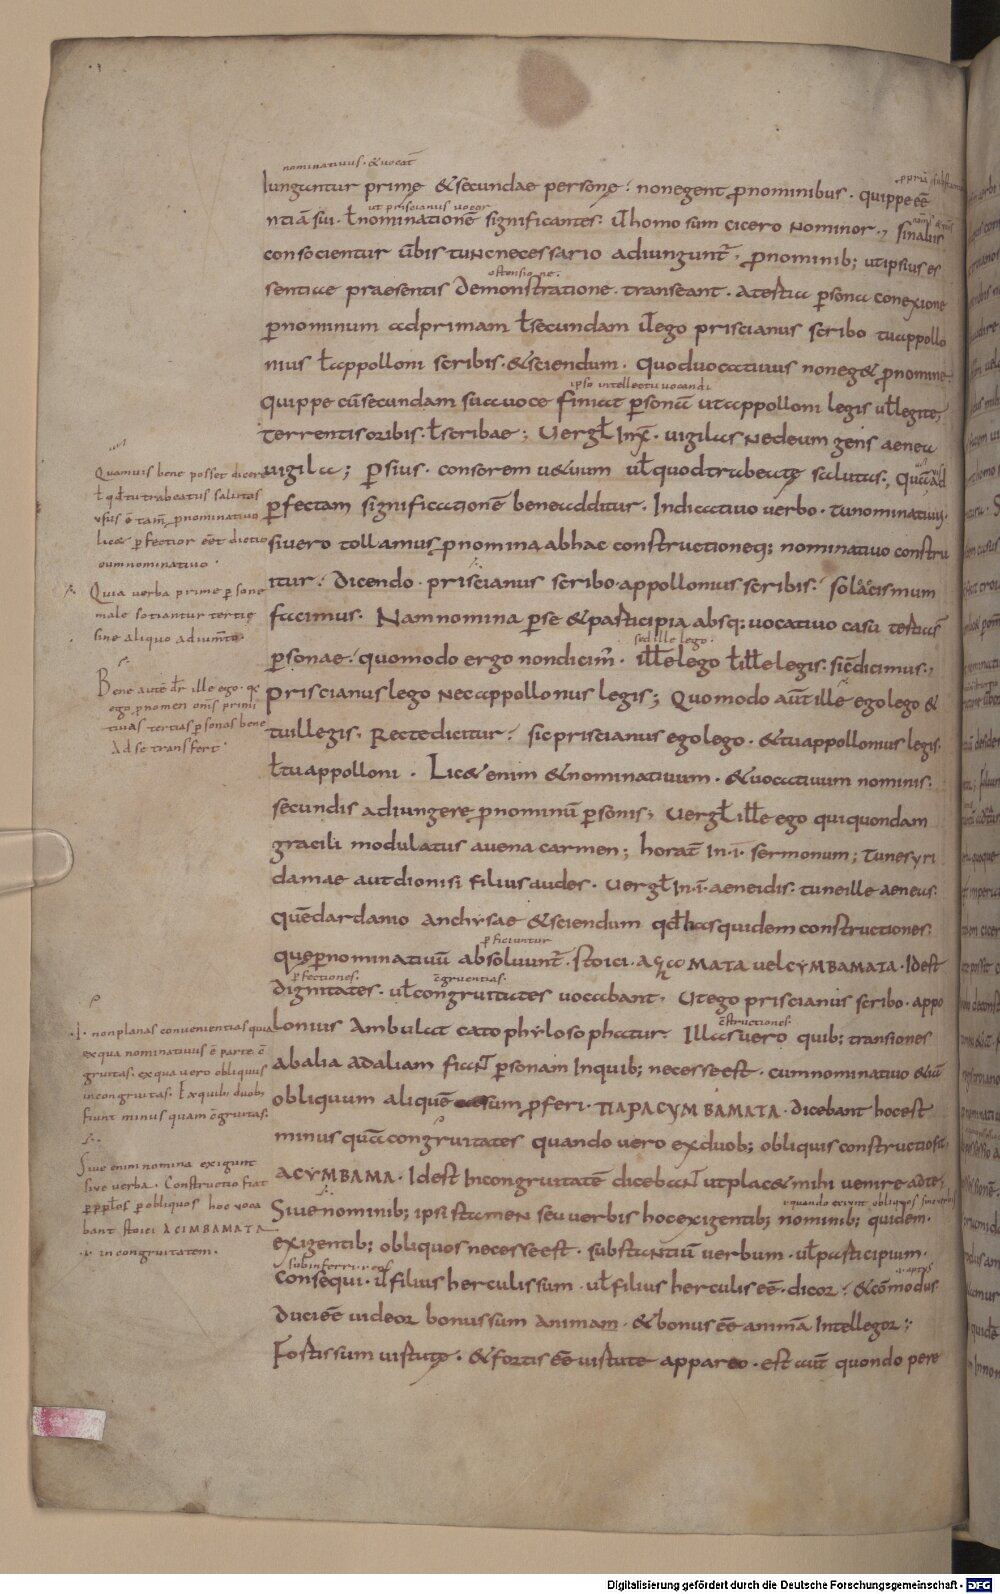 nominatiuus · & uocat̄
lunguntur primę & secundae personę · non egent ꝓnominibus · quippe eē̄
ut priscianus uocor
ntiā sui · ł nominationē significantes · ut homo sum cicero nominor ·, sin aliis
consocientur uerbis tunc necessario adiungunt̄ · ꝓnominib; ut ipsius es
ostensione ·
sentiae praesentis demonstratione · transeant · a tertia ꝑsona conexione
ꝓnominum ad primam ł secundam ut ego priscianus scribo tu appollo
nius ł appolloni scribis · & sciendum · quod uocatiuus non eg& ꝓnomine
ipso intellectu uocandi
quippe cū secundam sua uoce finiat ꝑsonā ut appolloni legis uł legite,
terrentis oribis · ł scribae ; Uergł in x · uigilas ne deum gens aenea
uigila ; Persius · consorem ue uum uł quod trabeate salutas ·, Quā ad
ꝑfectam significationē bene additur · Indicatiuo uerbo · tu nominatiuus ·
siuero tollamus ꝓnomina ab hac constructioneq; nominatiuo constru
itur · dicendo · priscianus scribo · appollonius scribis · solacismum
facimus · Nam nomina per se & participia absq; uocatiuo casu tertiae s̄
sed ille lego ·
personae · quomodo ergo non dicim̄ · ille lego ł ille legis · sic dicimus ·,
priscianus lego nec appollonus legis ; Quomodo aūt ille ego lego &
tu illegis · Recte dicitur · sic priscianus ego lego · & tu appollonius legis ·
ł tu appolloni · Lic& enim & nominatiuum · & uocatiuum nominis ·
secundis adiungere ꝓnominū personis ; Uergł ille ego qui quondam
gracili modulatus auena carmen ; horat̄ in · i · sermonum ; Tune syri
damae aut dionisi filius audes · Uergł in · i · aeneidis · tune ille aeneus ·
Quē dardanio anchysae & sciendum qđ has quidem constructiones
ꝑficiuntur
quę ꝑ nominatiuū absoluunt̄ · stoici · ΑξιωΜΑΤΑ uel CYMBAMATA · Idest
ꝑfectiones · c̄gruentias ·
dignitates · uł congruitates uocabant · Ut ego priscianus scribo · appo
lonius ambulat cato phylosophatur · Illas uero quib; transiones
c̄structiones
ab alia ad aliam fiaNT personam Inquib; necesse est · cum nominatiuo &iā
obliquum aliquē casum proferi · ΠΑΡΑCYMBAMATA · dicebant hoc est
minus quā congruitates quando uero ex duob; obliquis constructio fit ·
ACYMBAMA · Idest Incongruitatē dicebaNT ut plac& mihi uenire ad te ·,
quando exigunt obliquos sine uerbis
Siue nominib; ipsis tamen seu uerbis hoc exigentib; nominib; quidem ·
exigentib; obliquos necesse est · substantiū uerbum · uł participium ·
subinferri
consequi · ut filius herculis sum · uł filius herculis eē · dicor · & cōmodus
duci eē uideor bonus sum animam · & bonus eē animā Intellegor ;
Fortis sum uirtute · & fortis eē uirtute appareo · est aut̄ quondo pere
Quamuis bene posset dicere
ł qđ tu trabeatus salutas
usus ē tam̄ ꝓnominatiuo
lic& ꝑfectior eēt dictio
cum nominatiuo ·
Quia uerba prime ꝑsone
male sotiantur tertie
sine aliquo adiumto ·
Bene aut̄ dr̄ ille ego · q̄
ego ꝓnomen om̄is primi
tiuas tertias ꝑsonas bene
ad se transfert ·
· I · non planas conuenientias quia
ex qua nominatiuus ē parte c̄
gruitas · ex qua uero obliquus
incongruitas · Ex quib; duob;
fiunt minus quam c̄gruitas ·
Siue enim nomina exigunt
siue uerba · Constructio fiat
ꝑ obliquos hoc uoca
bant stoici ACIMBAMATA
· i · incongruitatem ·
Digitalisierung gefördert durch die Deutsche Forschungsgemeinschaft - DFG